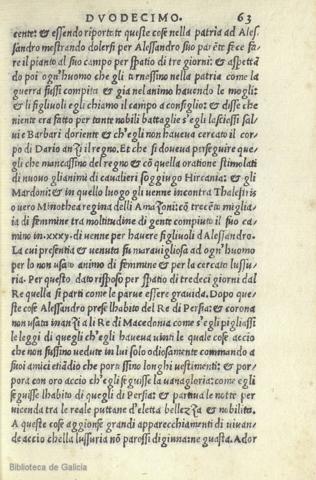 DVODECIMO. 63
cente: & essendo riportete quiste cose nella patria ad Ales⸗
sandro mestrando dolersi per Alessandro suo paréte fece fa⸗
re il pianto al suo campo per spatio di tre giorni: & aspettā
do poi ogn'huomo che gli turnessino nella patria come la
guerra fussi compita & gia nel animo havendo le mogli:
& li figliuoli egli chiamo il campo a consiglio: & disse che
niente era fatto per tante nobili battaglie s'egli lasciossi sal⸗
vi e Barbari doriente & ch'egli non haveva cercato il cor⸗
po di Dario anzi il regno. Et che si doveva perseguire que
gli che mancassino del regno & cō quella oratione stimolati
di nuovo gli animi di cavalieri soggiugo Hircania: & gli
Mardoni: & in quello luogo gli venne incontra Thalestris
o vero Minothea regina delli Amazoni: cō trecéto miglia⸗
ia di femmine tra moltitudine di gente compiuto il suo ca⸗
mino in .xxxv. di venne per havere figliuoli d'Alessandro.
La cui presentia & venuta fu maravigliosa ad ogn'huomo
per lo non usato animo di femmine & per la cercato lussu⸗
ria. Per questo dato risposo per spatio di tredeci giorni dal
Re quella si parti come le parue essere gravida. Dopo que⸗
ste cose Alessandro prese lhabito del Re di Persia: & corona
non usata inanzi a li Re di Macedonia come s'egli pigliassi
le leggi di quegli ch'egli haveva vinti le quale cose accio
che non fussino vedute in lui solo odiosamente commando a
suoi amici etiādio che portassino longhi vestimenti: & por⸗
pora con oro accio ch'egli seguisse la vanagloria: come egli
seguisse lhabito di quegli di Persia: & partiva le notte per
vicenda tra le reale puttane d'eletta bellezza & nobilita.
A queste cose aggionse grandi apparecchiamenti di vivan⸗
de accio chella lussuria nō paressi digiuna ne guasta. Ador
Biblioteca de Galicia